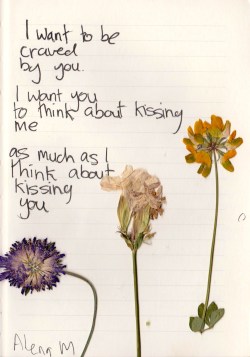 I want to be
craved
by you.
I want you
to think about kissing
me
as much as I
think about
kissing
you
Alena M